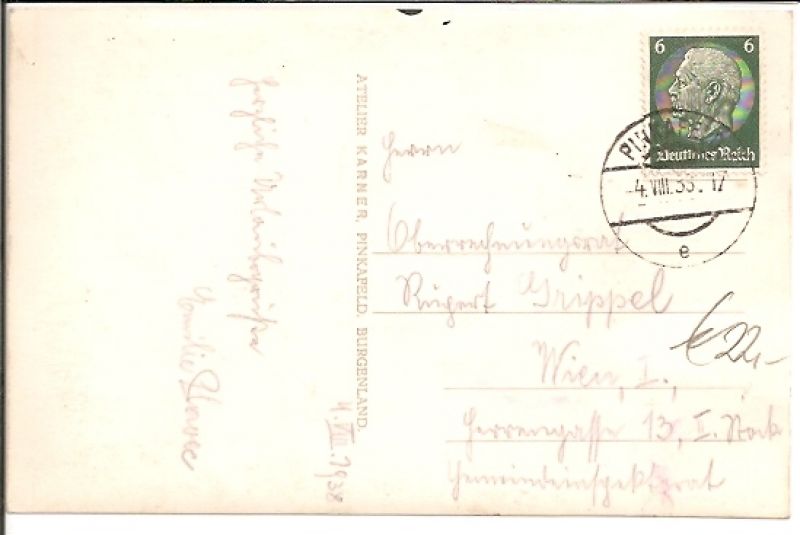 Herzliche Urlaubsgrüße
Familie
4. VIII. 1938
ATELIER KARNER, PINKAFELD, BURGENLAND.
6 6
Deutsches Reich
PINKAFELD
-4.VIII.38.-17
e
Herrn
Oberrechnungsrat
Rupert Grippel
Wien, I.,
Herrengasse 13, I. Stock
Gemeindeinspektorat
€ 22,-